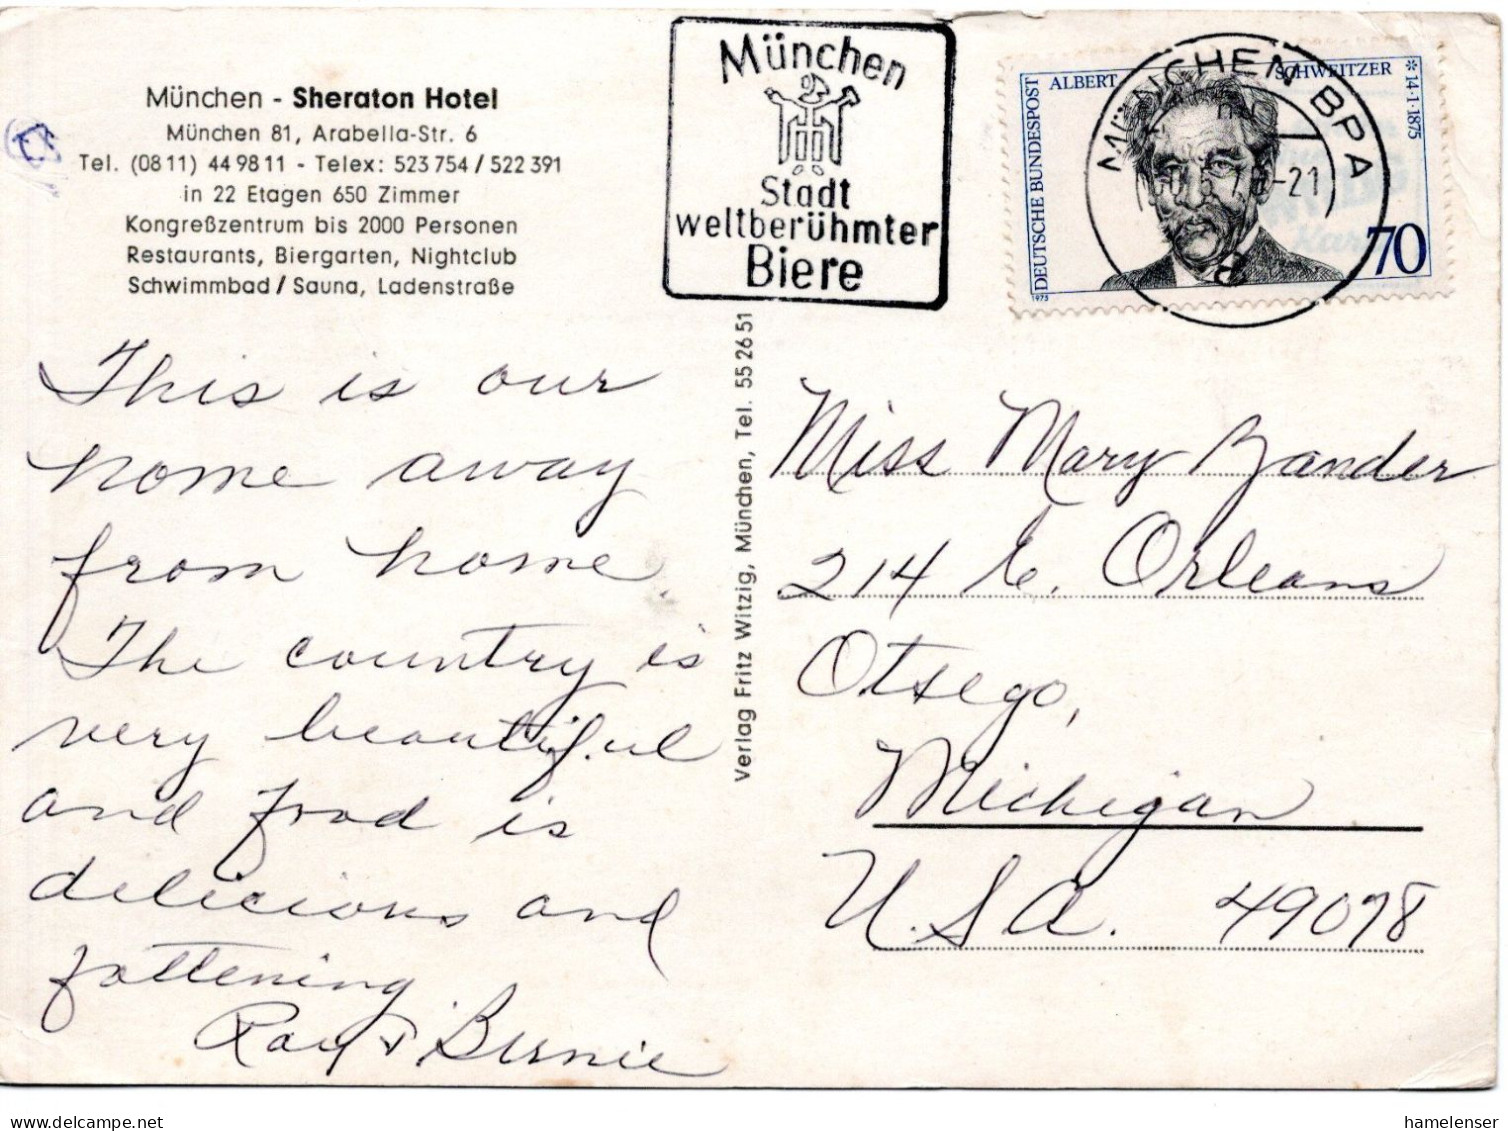 München - Sheraton Hotel
München 81, Arabella-Str. 6
Tel. (08 11) 44 98 11 - Telex: 523 754 / 522 391
in 22 Etagen 650 Zimmer
Kongreßzentrum bis 2000 Personen
Restaurants, Biergarten, Nightclub
Schwimmbad / Sauna, Ladenstraße
München
Stadt
weltberühmter
Biere
DEUTSCHE BUNDESPOST
ALBERT SCHWEITZER
* 14·1·1875
70
1975
MÜNCHEN BPA
-21
8
This is our
home away
from home.
The country is
very beautiful
and food is
delicious and
fattening.
Ray & Bernie
Verlag Fritz Witzig, München, Tel. 55 26 51
Miss Mary Zander
214 E. Orleans
Otsego,
Michigan
U.S.A. 49078
delcampe.net
hamelenser